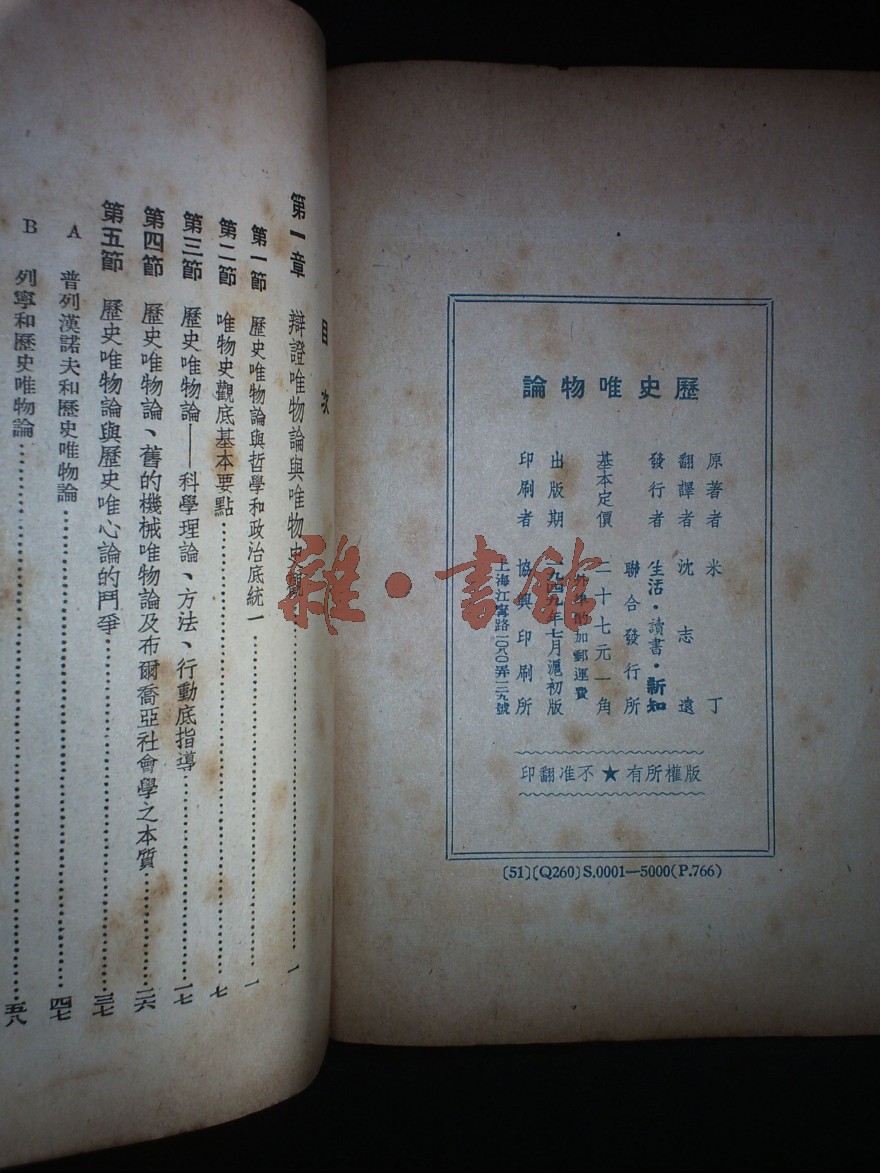 論物唯史歷
原著者 米丁
翻譯者 沈志遠
發行者 生活・讀書・新知
聯合發行所
基本定價 二十七元一角
外埠酌加郵運費
出版期 一九四九年七月滬初版
印刷者 協興印刷所
上海江寧路一〇八〇弄一二九號
印翻准不★有所權版
(51)(Q260)S.0001—5000(P.766)
目次
第一章 辯證唯物論與唯物史觀 一
第一節 歷史唯物論與哲學和政治底統一 一
第二節 唯物史觀底基本要點 七
第三節 歷史唯物論——科學理論、方法、行動底指導 一七
第四節 歷史唯物論、舊的機械唯物論及布爾喬亞社會學之本質 二六
第五節 歷史唯物論與歷史唯心論的鬥爭 三七
A 普列漢諾夫和歷史唯物論 四七
B 列寧和歷史唯物論 五八
雜・書館